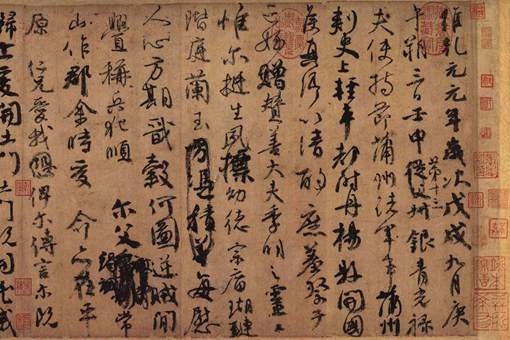 維乾元元年歲次戊戌九月庚
午朔三日壬申第十三從父銀青光祿
夫使持節蒲州諸軍事蒲州
刺史上輕車都尉丹楊縣開國
侯真卿以清酌庶羞祭于
亡姪贈贊善大夫季明之靈
惟爾挺生夙標幼德宗廟瑚璉
階庭蘭玉方憑積善每慰
人心方期戩穀何圖逆賊閒
釁稱兵犯順爾父常
山作郡余時受命亦在平
原仁兄愛我俾爾傳言爾既
歸止爰開土門土門既開凶威